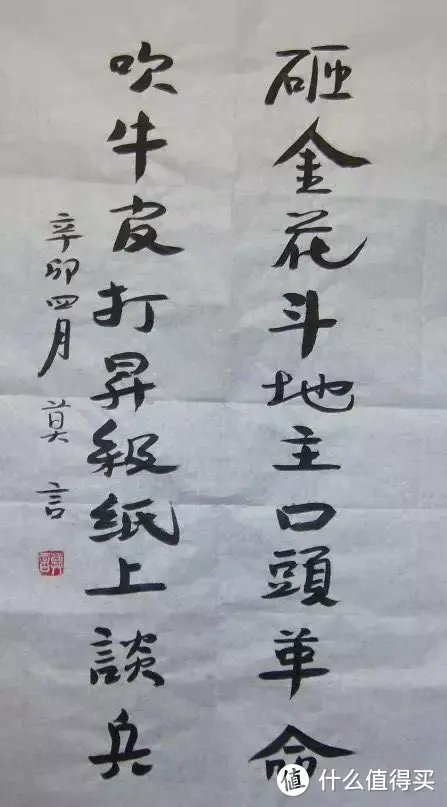 砸金花斗地主口頭革命
吹牛皮打昇級紙上談兵
辛卯四月 莫言
莫言
值 什么值得买